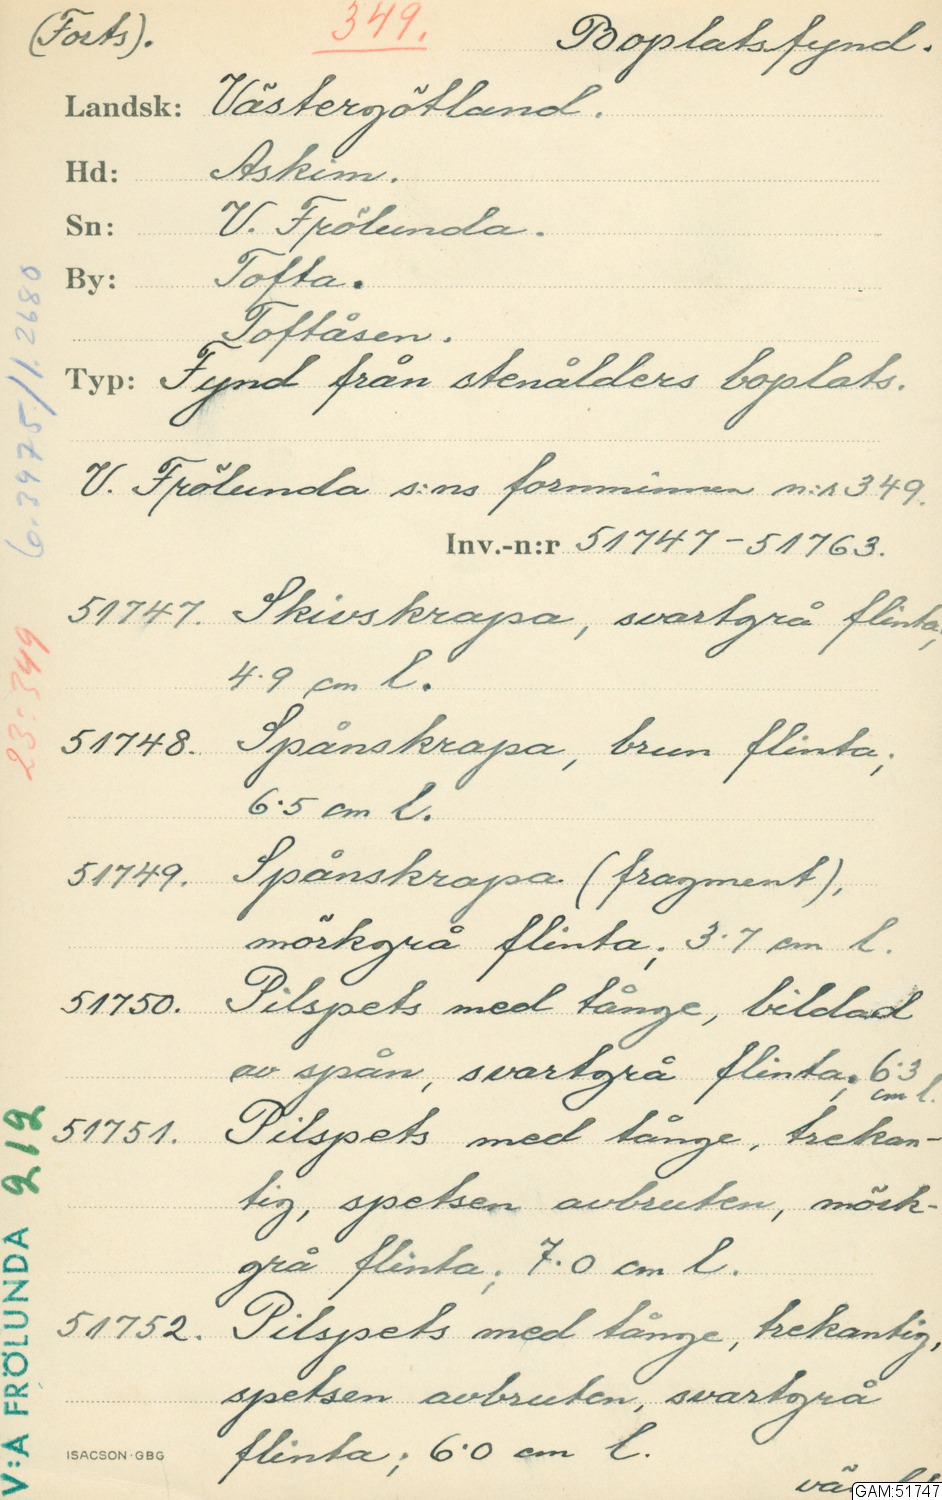 (Forts). 349. Boplatsfynd.
Landsk: Västergötland.
Hd: Askim.
Sn: V. Frölunda.
By: Tofta.
Toftåsen.
Typ: Fynd från stenålders boplats.
V. Frölunda s:ns fornminnen n:r 349.
Inv.-n:r 51747-51763.
51747. Skivskrapa, svartgrå flinta;
4·9 cm l.
51748. Spånskrapa, brun flinta;
6·5 cm l.
51749. Spånskrapa (fragment),
mörkgrå flinta; 3·7 cm l.
51750. Pilspets med tånge, bildad
av spån, svartgrå flinta; 6·3
cm l.
51751. Pilspets med tånge, trekan-
tig, spetsen avbruten, mörk-
grå flinta; 7·0 cm l.
51752. Pilspets med tånge, trekantig,
spetsen avbruten, svartgrå
flinta; 6·0 cm l.
ISACSON-GBG
GAM:51747
23:349
V:A FRÖLUNDA 212